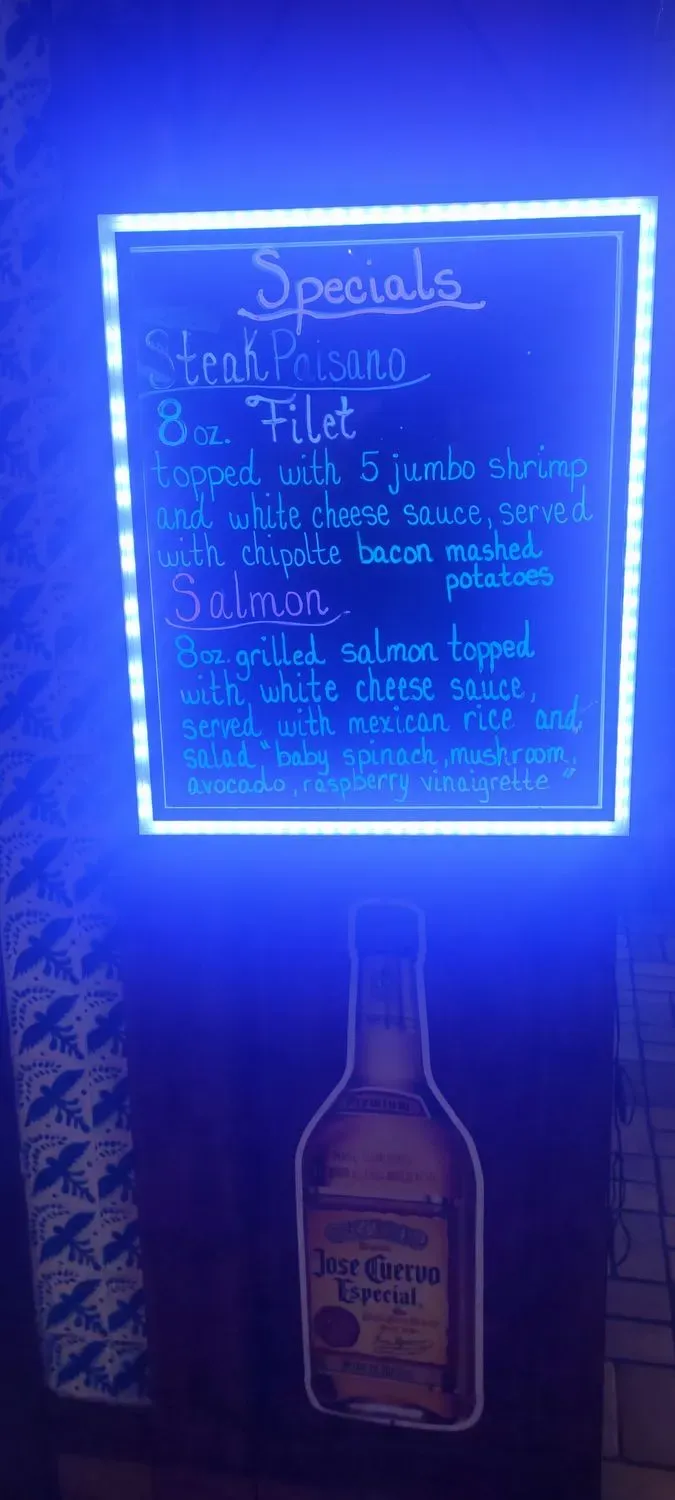 Specials
Steak Paisano
8 oz. Filet
topped with 5 jumbo shrimp
and white cheese sauce, served
with chipolte bacon mashed
potatoes
Salmon
8oz. grilled salmon topped
with white cheese sauce,
served with mexican rice and
salad "baby spinach, mushroom,
avocado, raspberry vinaigrette"
Premium
Jose Cuervo
Especial